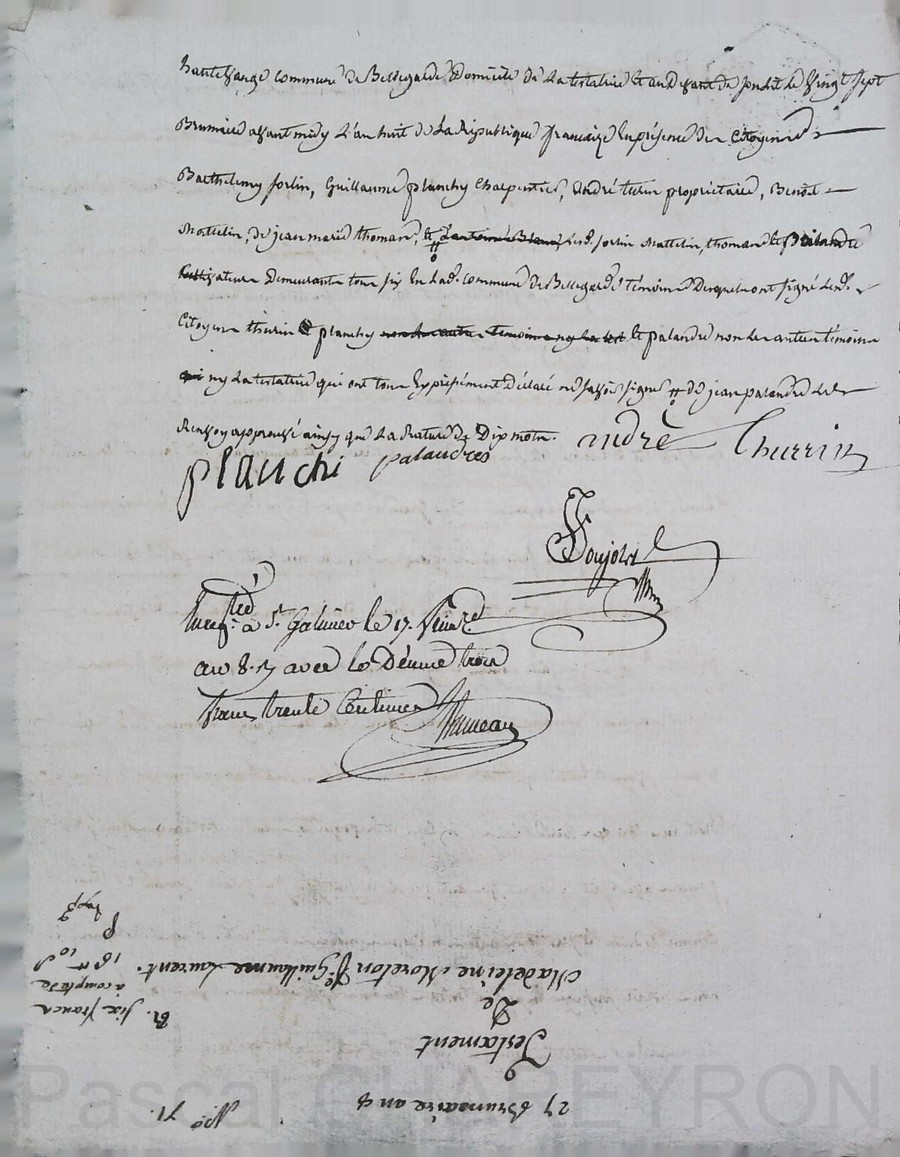 commune de Bellegarde Domicile de la testatrice et le vingt sept
Brumaire avant midy L'an huit de La République francaize En présence des Citoyens
Barthelemy forlin, Guillaume planchy Charpentier, André turin propriétaire, Benoît
Mattelin, de jean marie thomas, et Lesd. forlin Mattelin, thomas et palandre
Demeurants tous six En Lad. Commune de Bellegarde témoins Desquels ont signé Lesd.
Citoyens thurin et planchy et palandre non Les autres témoins
ny La testatrice qui ont tous Expressément déclaré ne savoir signer # de jean palandre Le
Renvoy approuvé ainsy que La Rature de Dix mots.
andrè Thurrin
planchi palandres
Soujols
à St. Galmier le 17.
an 8. avec le Décime trois
francs trente Centimes
N.o 71. 27 Brumaire an 8
Testament
De
Madeleine Moreton f.e Guillaume Laurent.
six francs
à compte de
16 10
Pascal CHAPEYRON